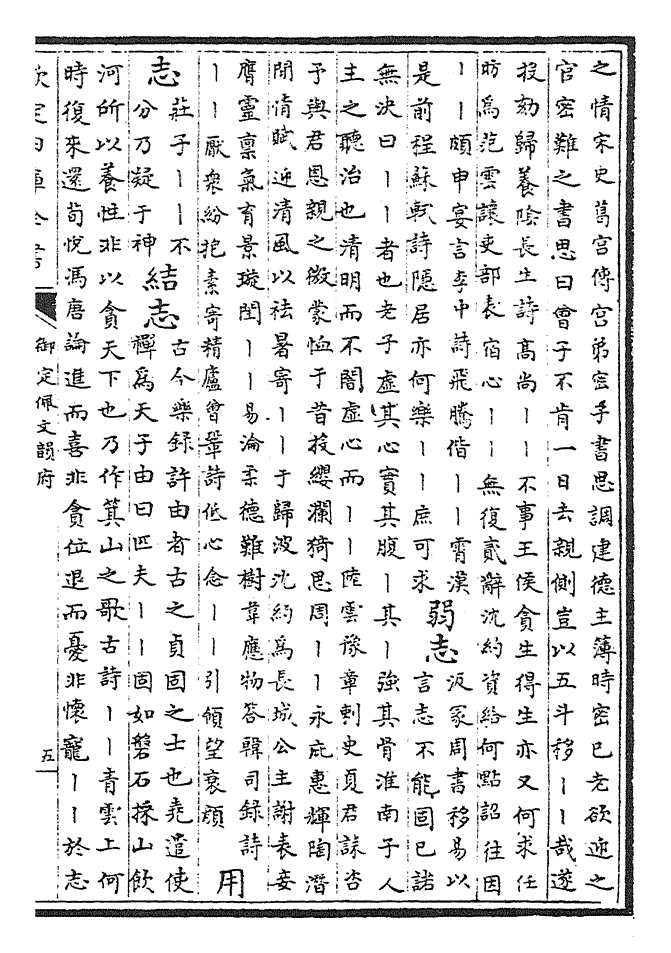 之情宋史葛宮傳宮弟密子書思調建德主簿時密已老欲迎之
官密難之書思曰曾子不肯一日去親側豈以五斗移丨丨哉遂
投劾歸養陰長生詩高尚丨丨不事王侯貪生得生亦又何求任
昉為范雲讓吏部表宿心丨丨無復貳辭沈約資給何點詔往因
丨丨頗申宴言李中詩飛騰偕丨丨霄漢
是前程蘇軾詩隱居亦何樂丨丨庶可求
弱志
汲冢周書移易以
言志不能固已諾
無決曰丨丨者也老子虛其心實其腹丨其丨強其骨淮南子人
主之聽治也清明而不闇虛心而丨丨陸雲豫章刺史夏君誄咨
予與君恩親之微蒙恤于昔投纓瀾猗思周丨丨永庇惠輝陶潛
閒情賦迎清風以袪暑寄丨丨于歸波沈約為長城公主謝表妾
膺靈禀氣育景璇閨丨丨易淪柔德難樹韋應物答韓司錄詩
丨丨厭衆紛抱素寄精廬曾鞏詩低心念丨丨引領望衰顔
用
志
莊子丨丨不
分乃凝于神
結志
古今樂錄許由者古之貞固之士也堯遣使
禪為天子由曰匹夫丨丨固如磐石採山飲
河所以養性非以貪天下也乃作箕山之歌古詩丨丨青雲上何
時復來還荀悅馮唐論進而喜非貪位退而憂非懷寵丨丨於志
欽定四庫全書
御定佩文韻府
五